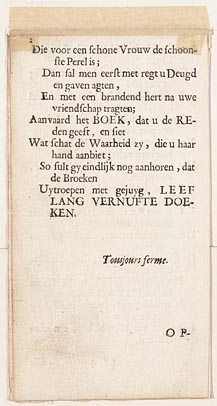 Die voor een schone Vrouw de schoon-
ste Perel is;
Dan sal men eerst met regt u Deugd
en gaven agten,
En met een brandend hert na uwe
vriendschap tragten;
Aanvaard het BOEK, dat u de RE-
den geest, en siet
Wat schat de Waarheid zy, die u haar
hand aanbiet;
So sult gy eindlijk nog aanhoren, dat
de Broeken
Uytroepen met gejuyg, LEEF
LANG VERNUFTE DOE-
KEN.
Toujours ferme.
OP-